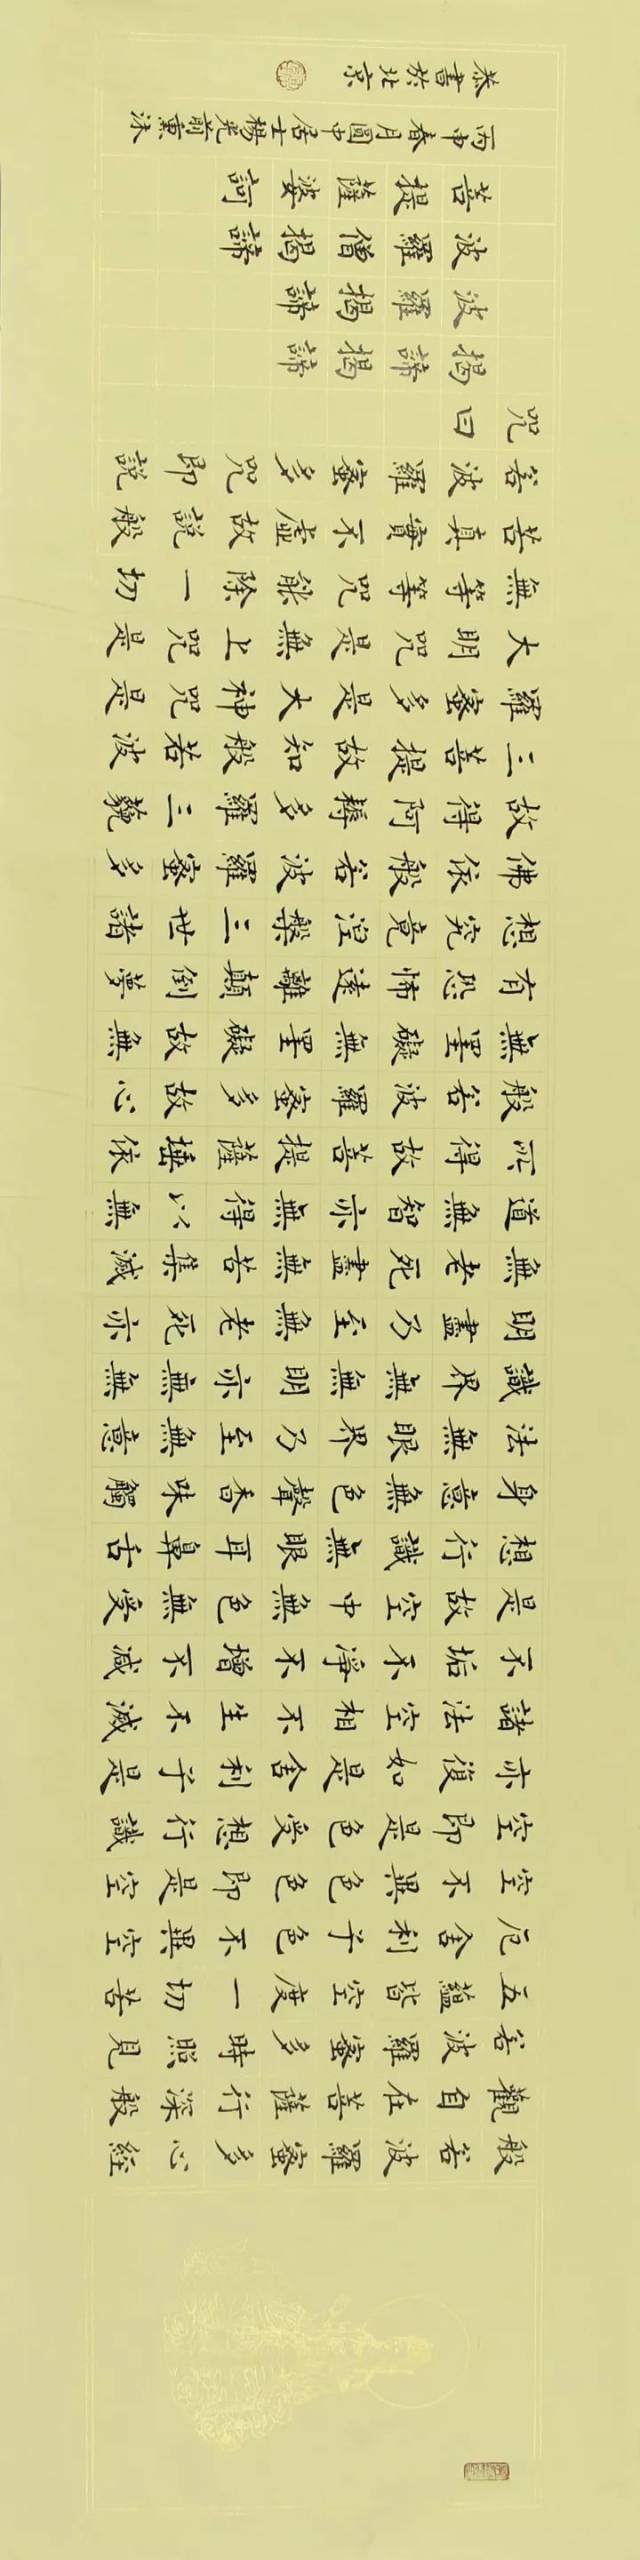 般若波羅蜜多心經
觀自在菩薩行深般
若波羅蜜多時照見
五蘊皆空度一切苦
厄舍利子色不異空
空不異色色即是空
空即是色受想行識
亦復如是舍利子是
諸法空相不生不滅
不垢不淨不增不減
是故空中無色無受
想行識無眼耳鼻舌
身意無色聲香味觸
法無眼界乃至無意
識界無無明亦無無
明盡乃至無老死亦
無老死盡無苦集滅
道無智亦無得以無
所得故菩提薩埵依
般若波羅蜜多故心
無罣礙無罣礙故無
有恐怖遠離顛倒夢
想究竟涅槃三世諸
佛依般若波羅蜜多
故得阿耨多羅三藐
三菩提故知般若波
羅蜜多是大神咒是
大明咒是無上咒是
無等等咒能除一切
苦真實不虛故說般
若波羅蜜多咒即說
咒曰
揭諦揭諦
波羅揭諦
波羅僧揭諦
菩提薩婆訶
丙申春月圓中居士楊光前熏沐
恭書於北京